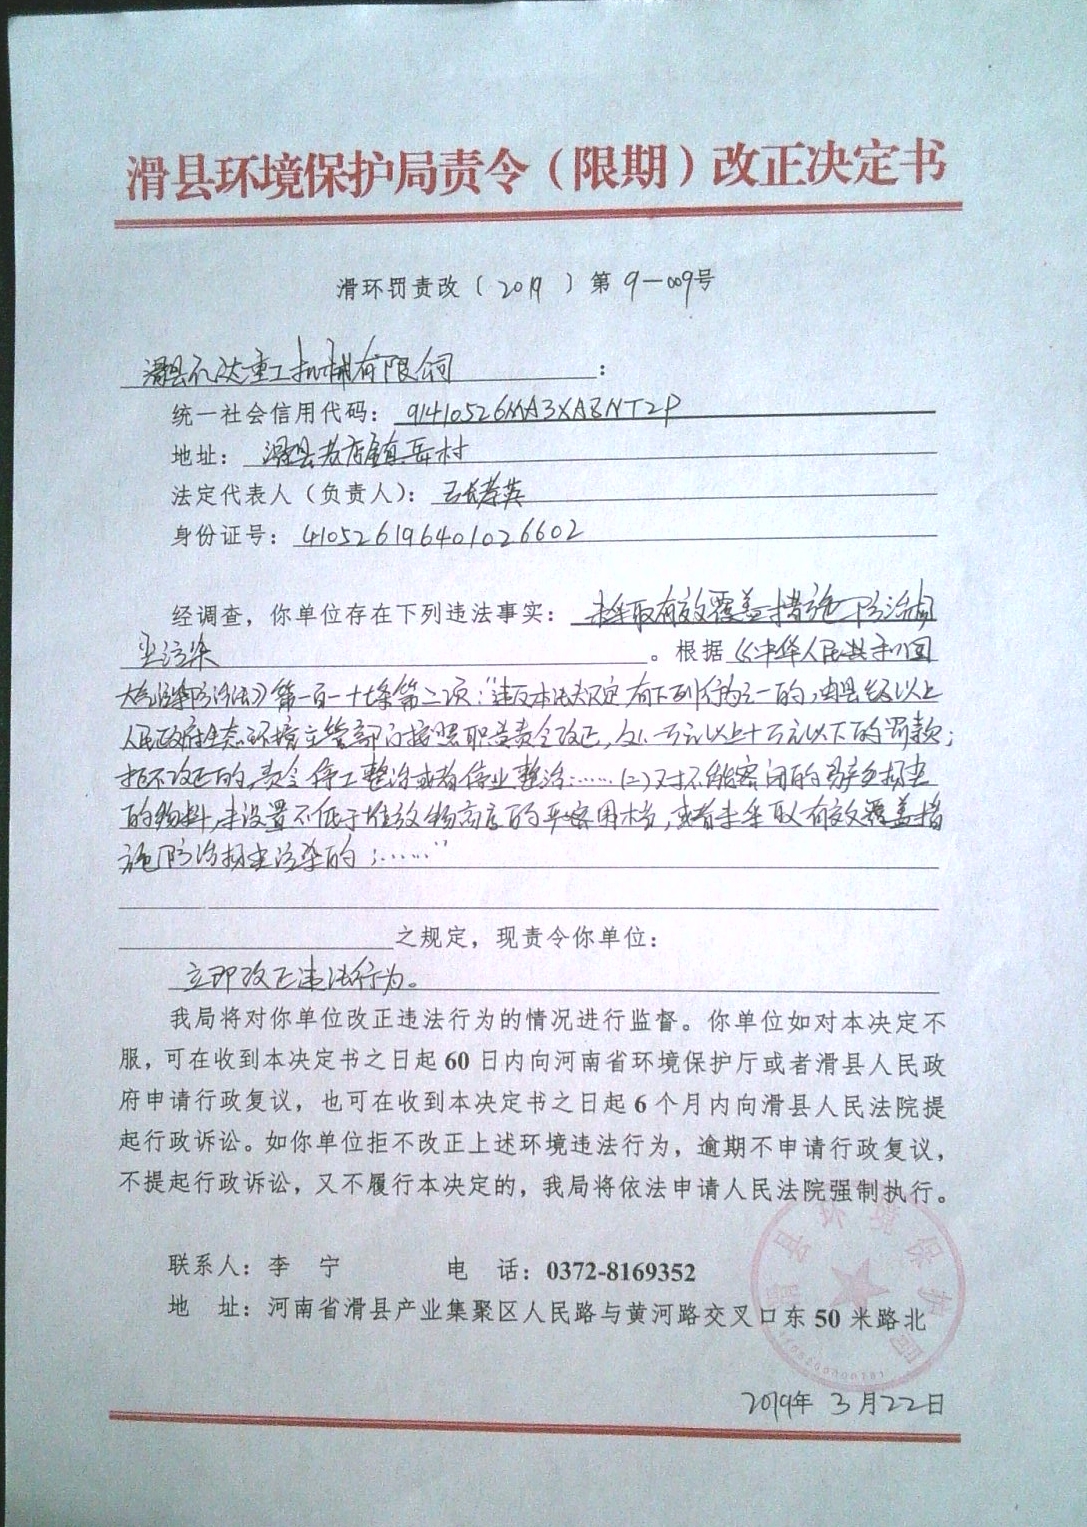 滑县环境保护局责令（限期）改正决定书
滑环罚责改〔2019〕第9-009号
滑县亿达重工机械有限公司：
统一社会信用代码：91410526MA3XA8NT2P
地址：滑县老店镇岳村
法定代表人（负责人）：
身份证号：410526196401026602
经调查，你单位存在下列违法事实：未采取有效覆盖措施防治扬
尘污染。根据《中华人民共和国
大气污染防治法》第一百一十七条第二项："违反本法规定有下列行为之一的，由县级以上
人民政府生态环境主管部门按照职责责令改正，处一万元以上十万元以下的罚款；
拒不改正的，责令停工整治或者停业整治：……（二）对不能密闭的易产生扬尘
的物料，未设置不低于堆放物高度的严密围挡，或者未采取有效覆盖措
施防治扬尘污染的；……"
之规定，现责令你单位：
立即改正违法行为。
我局将对你单位改正违法行为的情况进行监督。你单位如对本决定不
服，可在收到本决定书之日起60日内向河南省环境保护厅或者滑县人民政
府申请行政复议，也可在收到本决定书之日起6个月内向滑县人民法院提
起行政诉讼。如你单位拒不改正上述环境违法行为，逾期不申请行政复议，
不提起行政诉讼，又不履行本决定的，我局将依法申请人民法院强制执行。
滑县环境保护局
联系人：李 宁 电 话：0372-8169352
地 址：河南省滑县产业集聚区人民路与黄河路交叉口东50米路北
2019年3月22日